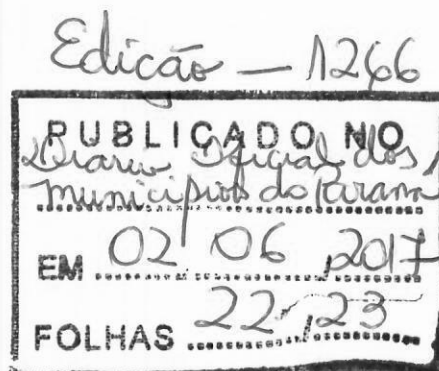 Edição — 1266
PUBLICADO NO
Diario Oficial dos
municipios do Parana
EM 02 06 2017
FOLHAS 22, 23